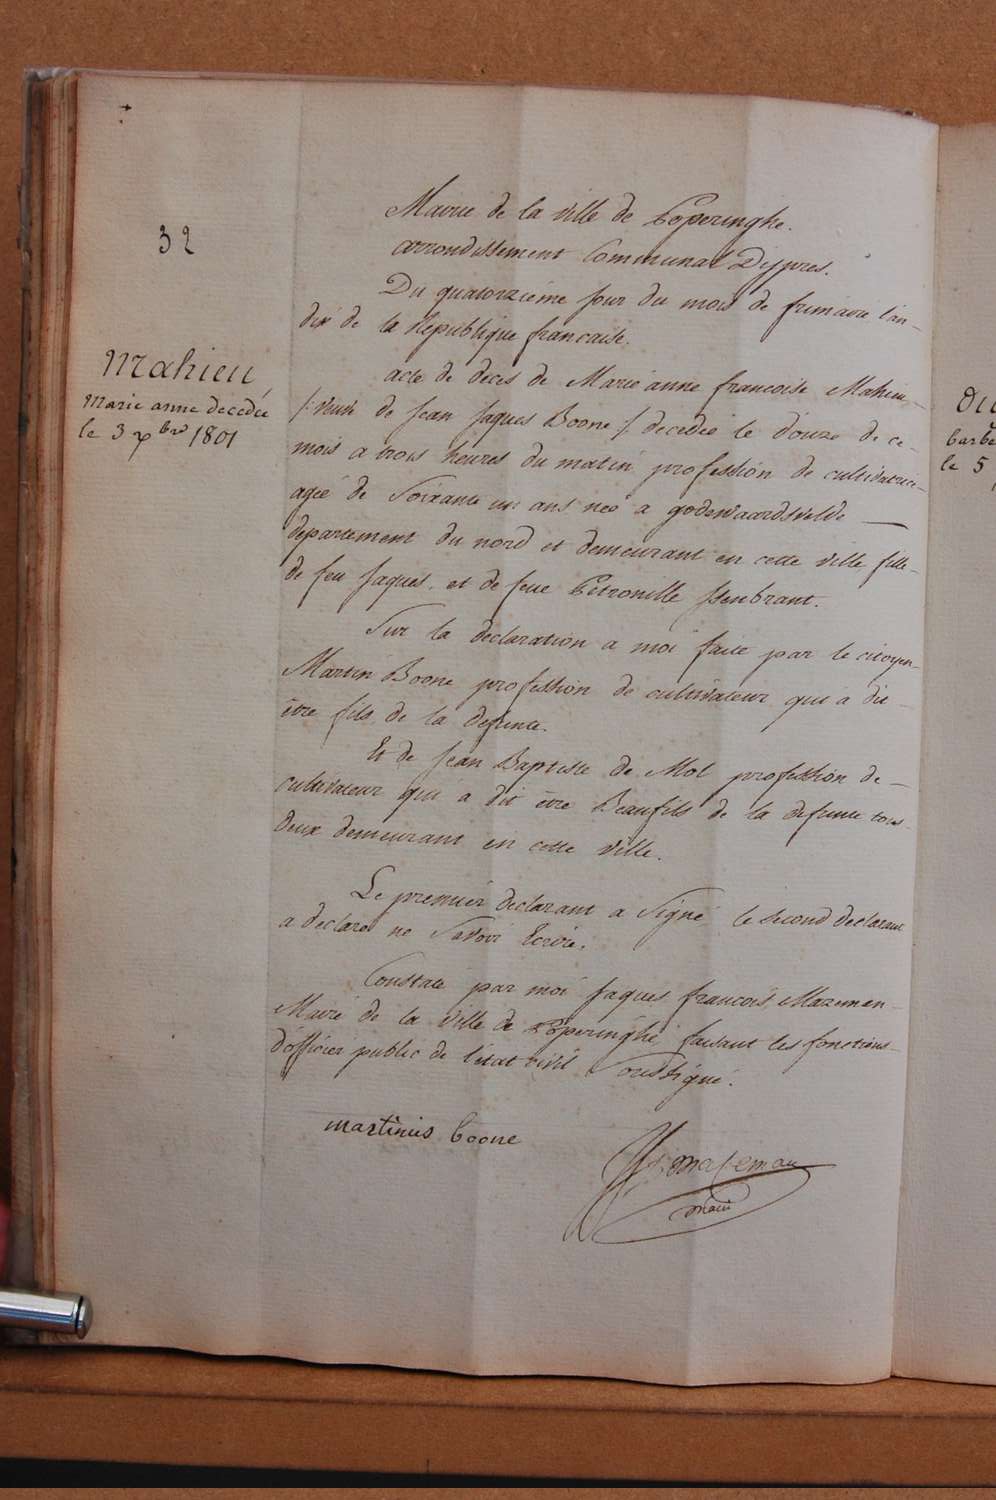 32
Mahieu
Marie anne decedée
le 3 xbre 1801
Mairie de la ville de Poperinghe.
arrondissement Communal D'ypres.
Du quatorzième jour du mois de frimaire l'an
dix de la Republique francaise.
acte de deces de Marie anne francoise Mahieu,
/: veuve de Jean Jaques Boone :/ decedée le douze de ce
mois a trois heures du matin profession de cultivatrice
ageé de Soixante un ans neé a godewaardsvelde
departement du nord et demeurant en cette ville fille
de feu Jaques. et de feue Pétronille Isenbrant.
Sur la declaration a moi faite par le citoyen
Martin Boone profession de cultivateur qui a dit
être fils de la defunte.
Et de Jean Baptiste de Mol profession de
cultivateur qui a dit être Beaufils de la defunte tous
deux demeurant en cette ville.
Le premier declarant a signé le second declarant
a declaré ne Savoir Ecrire.
Constaté par moi Jaques francois Mazeman
Maire de la ville de Poperinghe, faisant les fonctions
d'officier public de l'état civil soussigné.
martinus boone
J. f. mazeman
maire
Barbe
le 5